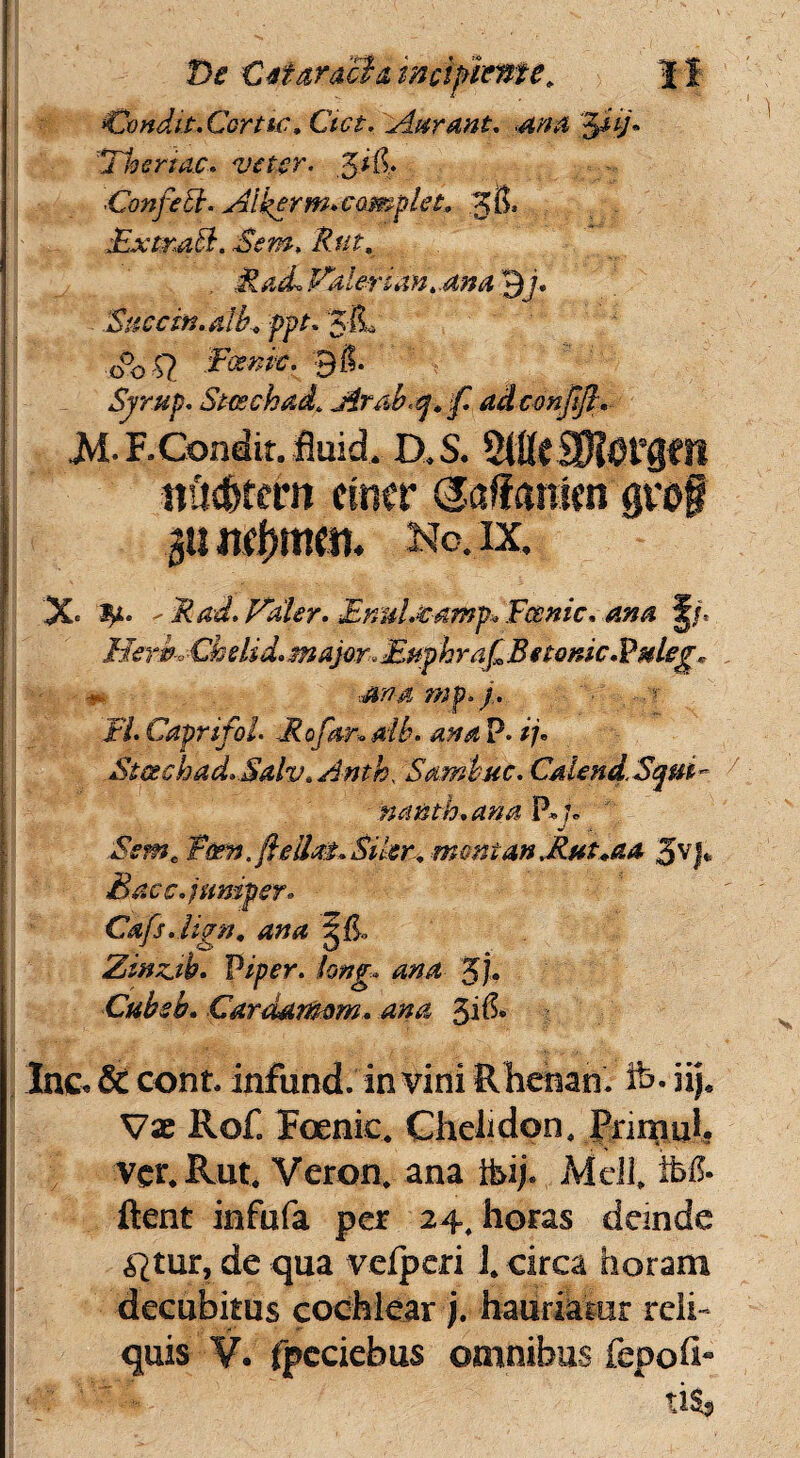 De Cataracta incipiente. 11
Condit. Cortic. Citt. Aurant. ana ʒiij.
Theriac. veter. ʒiß.
Confect. Alkerm. complet. ʒß.
Extract. Sem. Rut.
Rad. Valerian. ana ℈j.
Succin. alb. ppt. ʒß.
Fœnic. ℈ß.
Syrup. Stœchad. Arab. q. ſ. ad conſiſt.
M. F. Condit. fluid. D. S. Alle Morgen
nüchtern einer Caſtanien groß
zu nehmen. No. IX.
X. ℞. Rad. Valer. Enul. camp. Fœnic. ana ℥j.
Herb. Chelid. major. Euphraſ. Betonic. Puleg.
ana mp. j.
Fl. Caprifol. Roſar. alb. ana P. ij.
Stœchad. Salv. Anth. Sambuc. Calend. Squi-
nanth. ana P. j.
Sem. Fœn. ſtellat. Siler. montan. Rut. aa ʒvj.
Bacc. juniper.
Caſs. lign. ana ℥ß.
Zinzib. Piper. long. ana ʒj.
Cubeb. Cardamom. ana ʒiß.
Inc. & cont. infund. in vini Rhenan. ℔. iij.
Væ Roſ. Fœnic. Chelidon. Primul.
ver. Rut. Veron. ana ℔ij. Mell. ℔ß.
ſtent infuſa per 24. horas deinde
tur, de qua veſperi l. circa horam
decubitus cochlear j. hauriatur reli-
quis V. ſpeciebus omnibus ſepoſi-
tis,